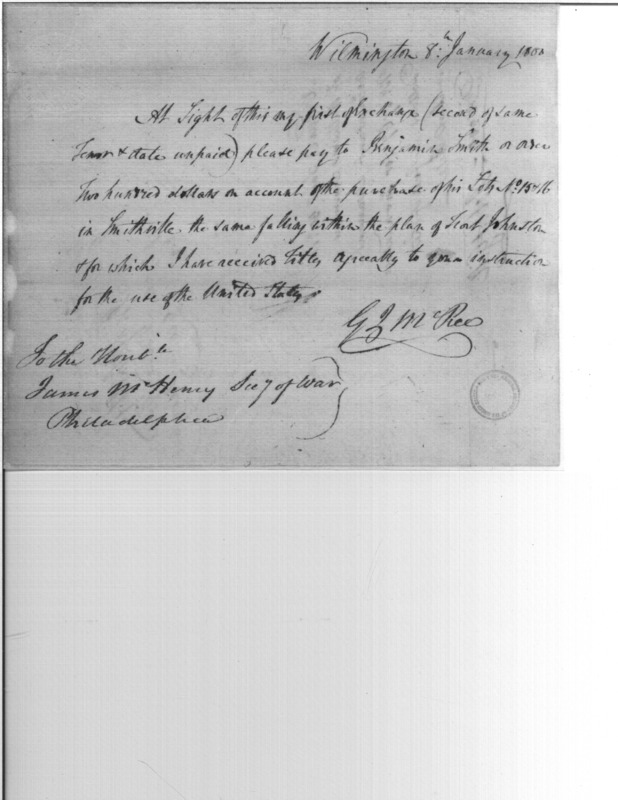 Wilmington 8th January 1800
At Sight of this my first of Exchange (second of same
Tenor & date unpaid) please pay to Benjamin Smith or order
Two hundred dollars on account of the purchase of his Lots No. 15 & 16
in Smithville the same falling within the plan of Fort Johnston
& for which I have received titles agreeably to your instruction
for the use of the United States.
G J McRee
To the Honble
James McHenry Secy of War
Philadelphia